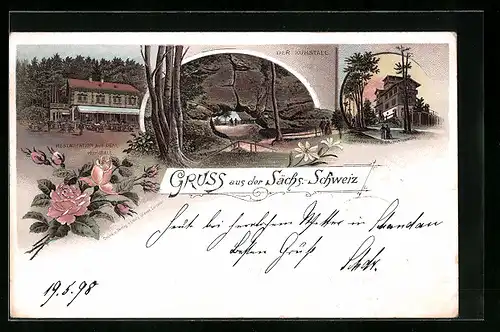 DER KUHSTALL
RESTAURATION AUF DEM
KUHSTALL
GRUSS aus der Sächs. Schweiz
Heut bei herrlichem Wetter in Schandau
besten Gruß
19.6.98